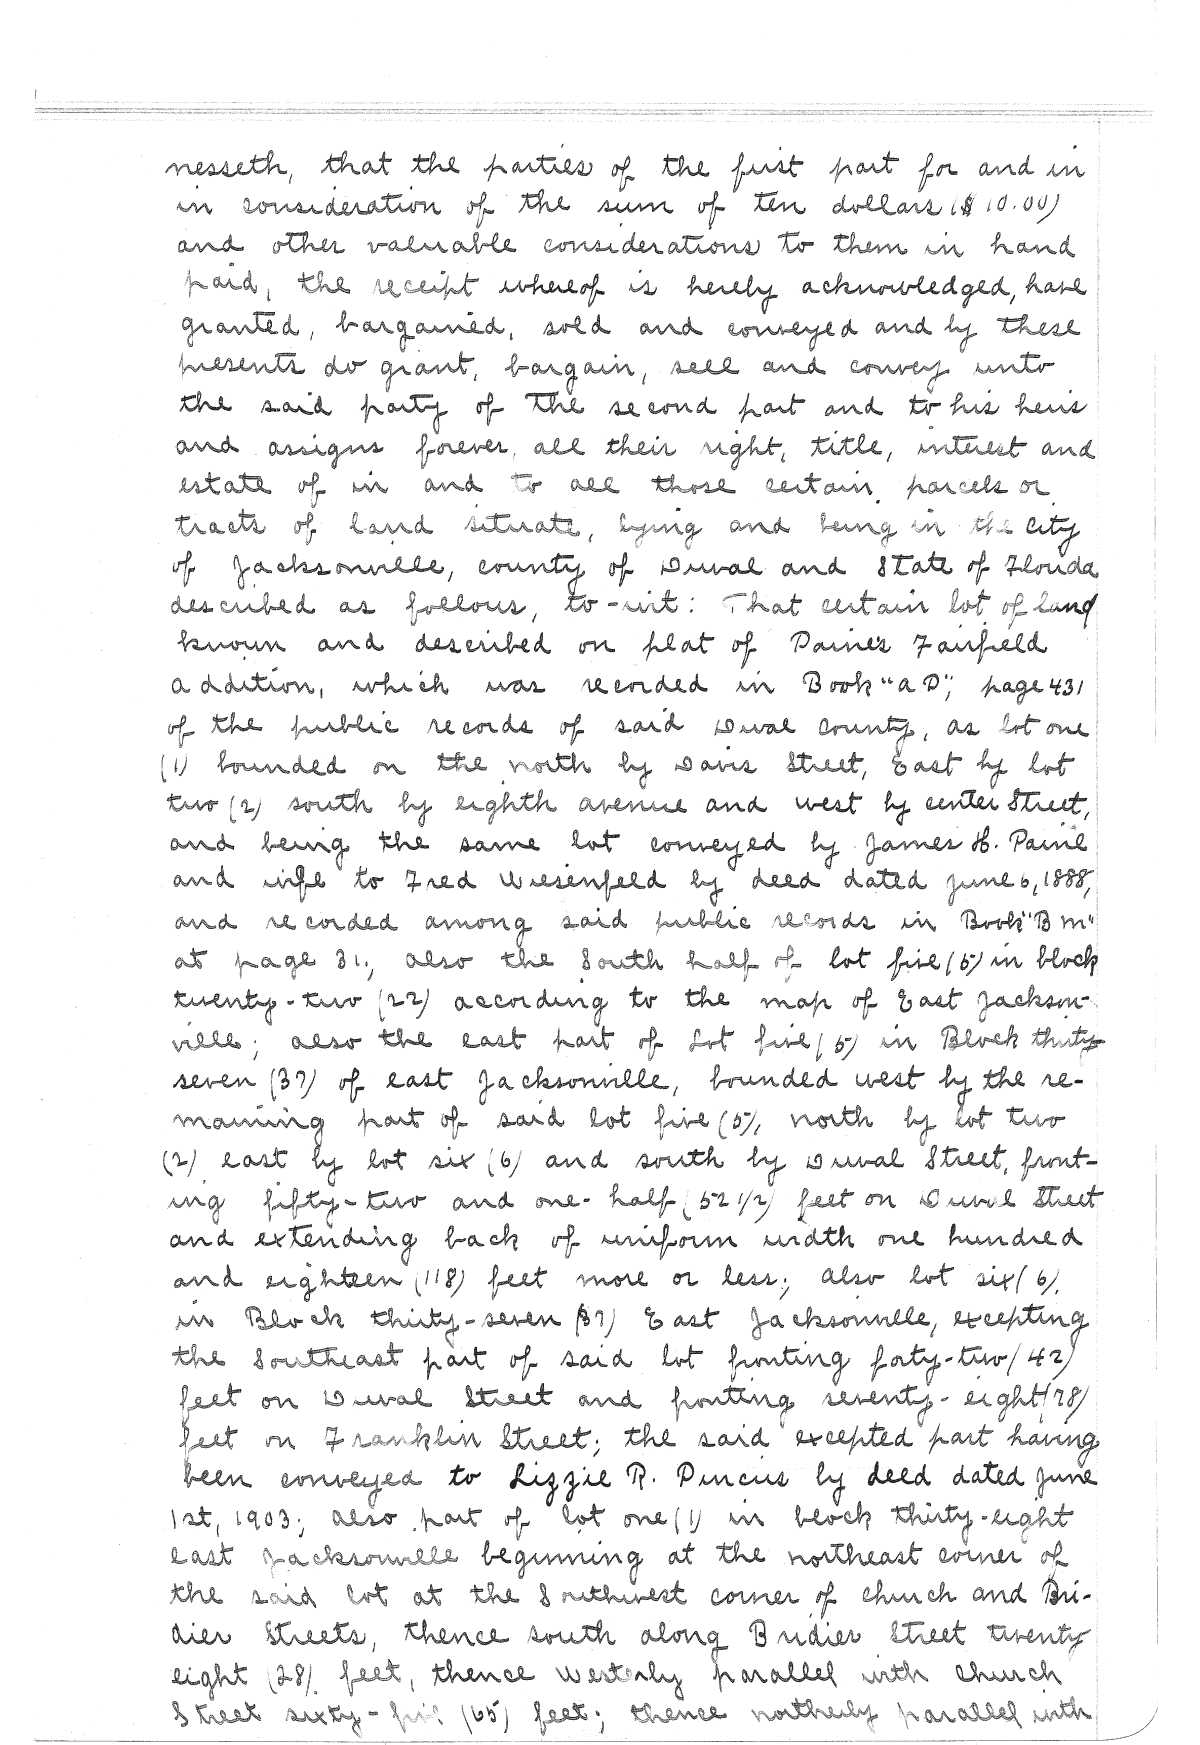 nesseth, that the parties of the first part for and in
in consideration of the sum of ten dollars ($10.00)
and other valuable considerations to them in hand
paid, the receipt whereof is hereby acknowledged, have
granted, bargained, sold and conveyed and by these
presents do grant, bargain, sell and convey unto
the said party of the second part and to his heirs
and assigns forever, all their right, title, interest and
estate of in and to all those certain parcels or
tracts of land situate, lying and being in the City
of Jacksonville, county of Duval and State of Florida
described as follows, to-wit: That certain lot of land
known and described on plat of Paine's Fairfield
addition, which was recorded in Book "A D", page 431
of the public records of said Duval County, as lot one
(1) bounded on the north by Davis Street, East by lot
two (2) south by eighth avenue and west by center Street,
and being the same lot conveyed by James H. Paine
and wife to Fred Wiesenfeld by deed dated June 6, 1888,
and recorded among said public records in Book "B M"
at page 31; also the South half of lot five (5) in block
twenty-two (22) according to the map of East Jackson-
ville; also the east part of Lot five (5) in Block thirty
seven (37) of east Jacksonville, bounded west by the re-
maining part of said lot five (5), north by lot two
(2) east by lot six (6) and south by Duval Street, front-
ing fifty-two and one-half (52 1/2) feet on Duval Street
and extending back of uniform width one hundred
and eighteen (118) feet more or less; also lot six (6),
in Block thirty-seven (37) East Jacksonville, excepting
the Southeast part of said lot fronting forty-two (42)
feet on Duval Street and fronting seventy-eight (78)
feet on Franklin Street; the said excepted part having
been conveyed to Lizzie R. Pincus by deed dated June
1st, 1903; also part of lot one (1) in block thirty-eight
east Jacksonville beginning at the northeast corner of
the said lot at the Southwest corner of church and Bri-
dier Streets, thence south along Bridier Street twenty
eight (28) feet, thence Westerly parallel with church
Street sixty-five (65) feet; thence northerly parallel with